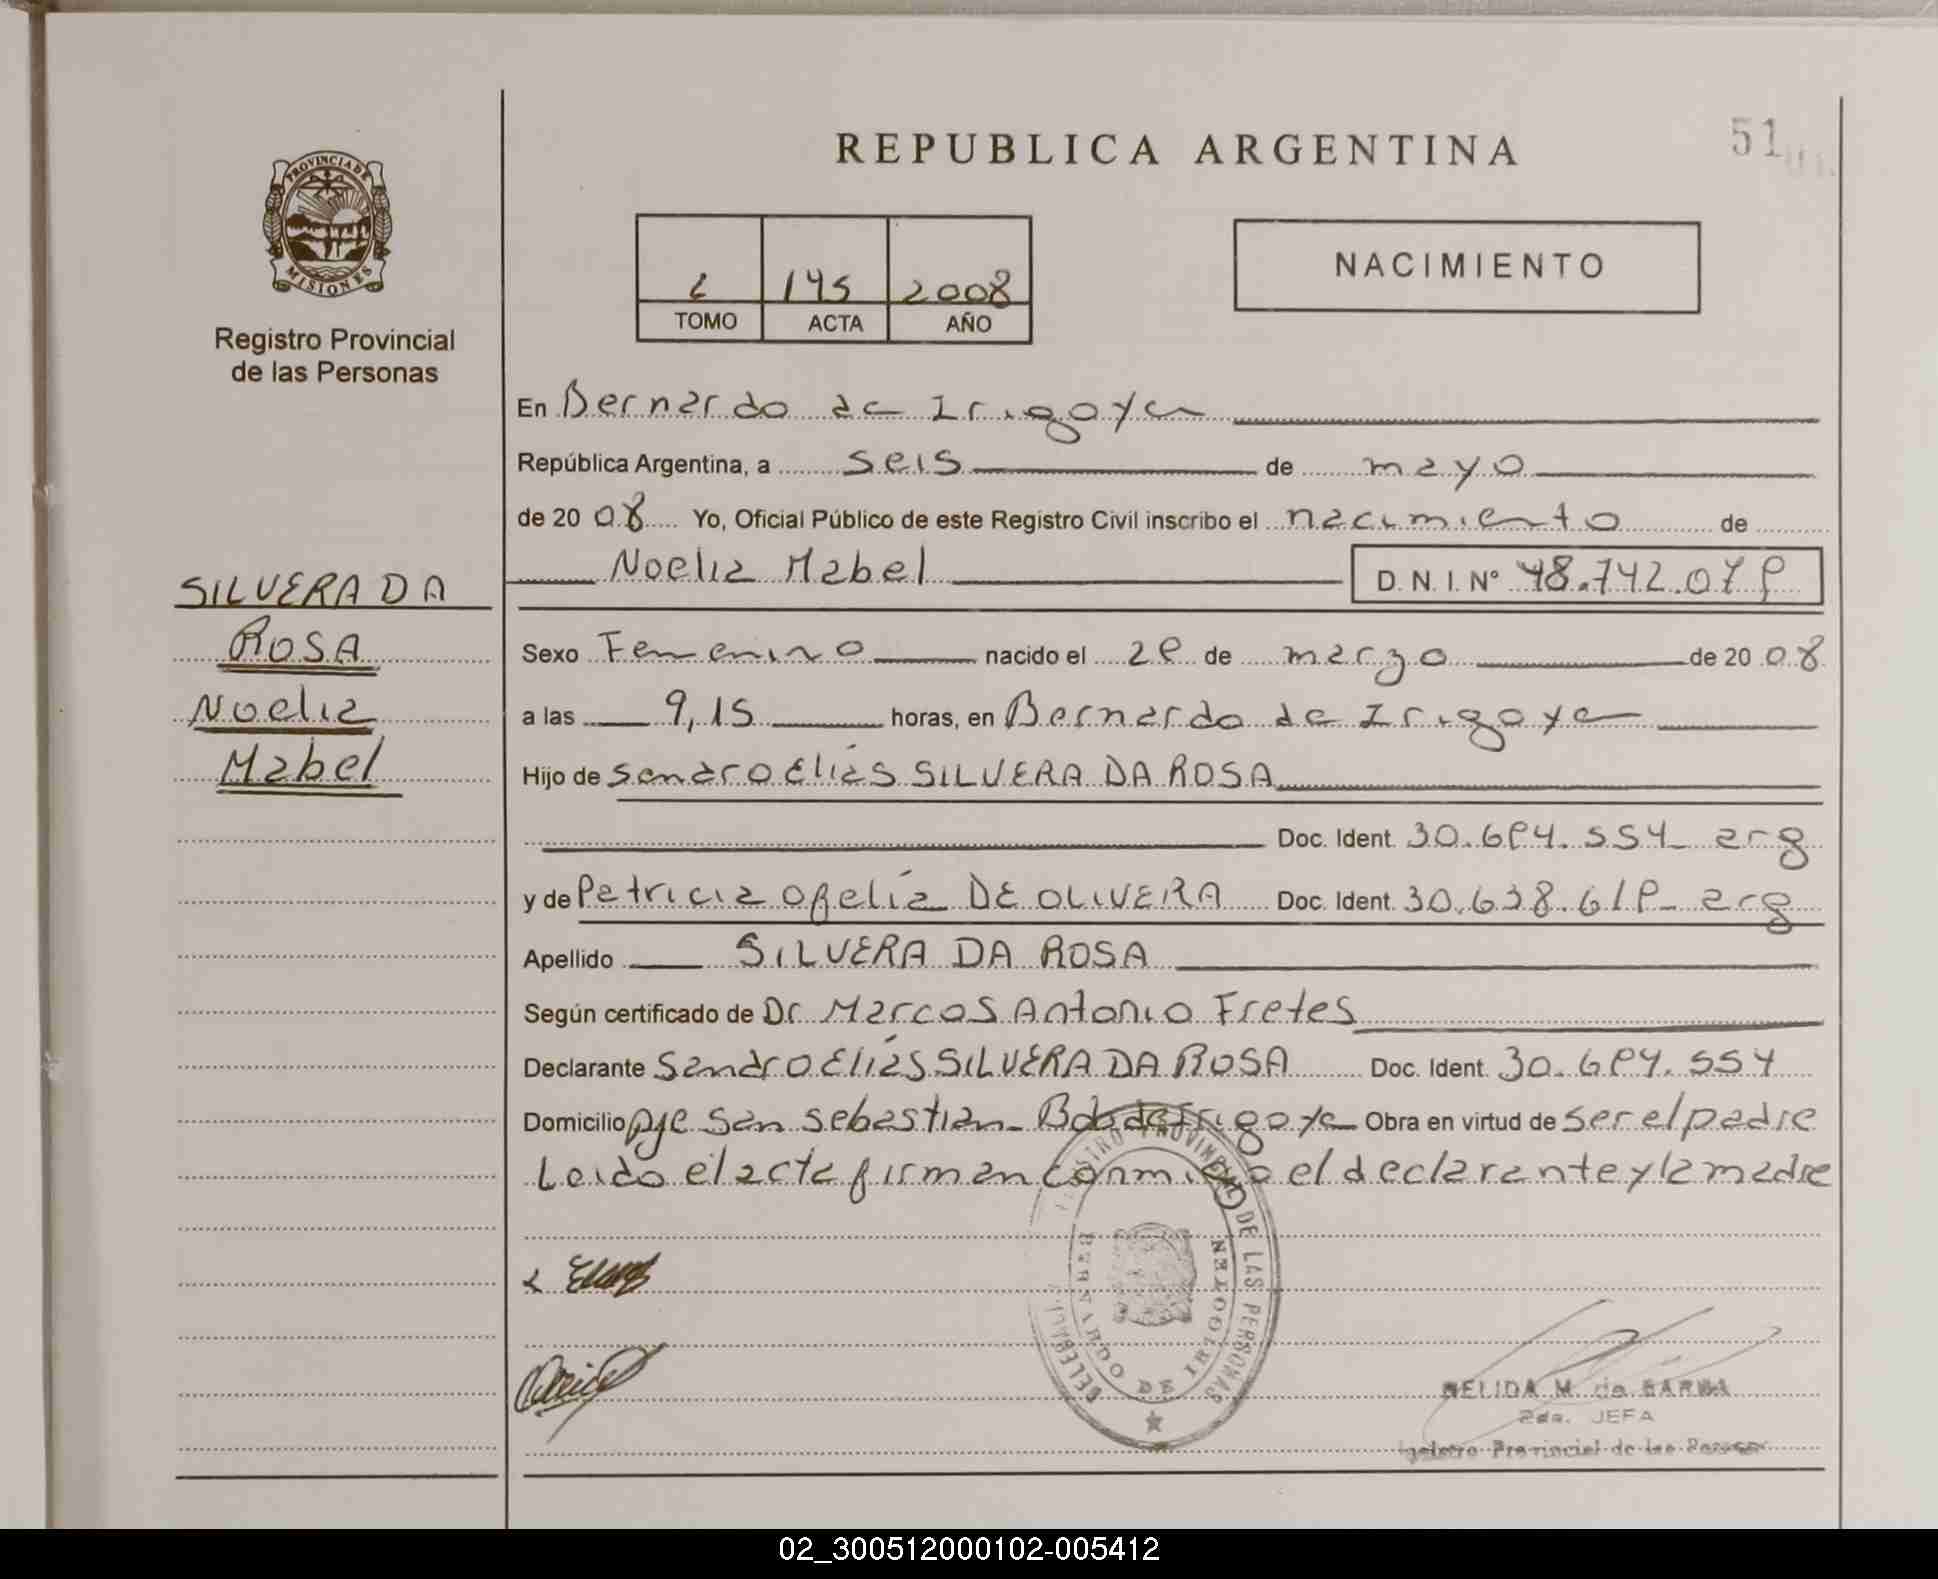 REPUBLICA ARGENTINA
51
PROVINCIA DE
MISIONES
Registro Provincial
de las Personas
145 2008
TOMO ACTA AÑO
NACIMIENTO
En Bernardo de Irigoyen
República Argentina, a seis de mayo
de 2008 Yo, Oficial Público de este Registro Civil inscribo el nacimiento de
Noelia Mabel D.N.I. Nº 48.742.079
SILVERA DA
ROSA
Noelia
Mabel
Sexo Femenino nacido el 29 de marzo de 2008
a las 9,15 horas, en Bernardo de Irigoyen
Hijo de Sandro Elías SILVERA DA ROSA
Doc. Ident. 30.694.554 arg
y de Patricia Ofelia DE OLIVERA Doc. Ident. 30.638.619 arg
Apellido SILVERA DA ROSA
Según certificado de Dr Marcos Antonio Fretes
Declarante Sandro Elías SILVERA DA ROSA Doc. Ident. 30.694.554
Domicilio Pje San Sebastian Bdo de Irigoyen Obra en virtud de ser el padre
Leido el acta firman conmigo el declarante y la madre
REGISTRO PROVINCIAL DE LAS PERSONAS
BERNARDO DE IRIGOYEN
NELIDA M. de
2da. JEFA
Registro Provincial de las Personas
02_300512000102-005412